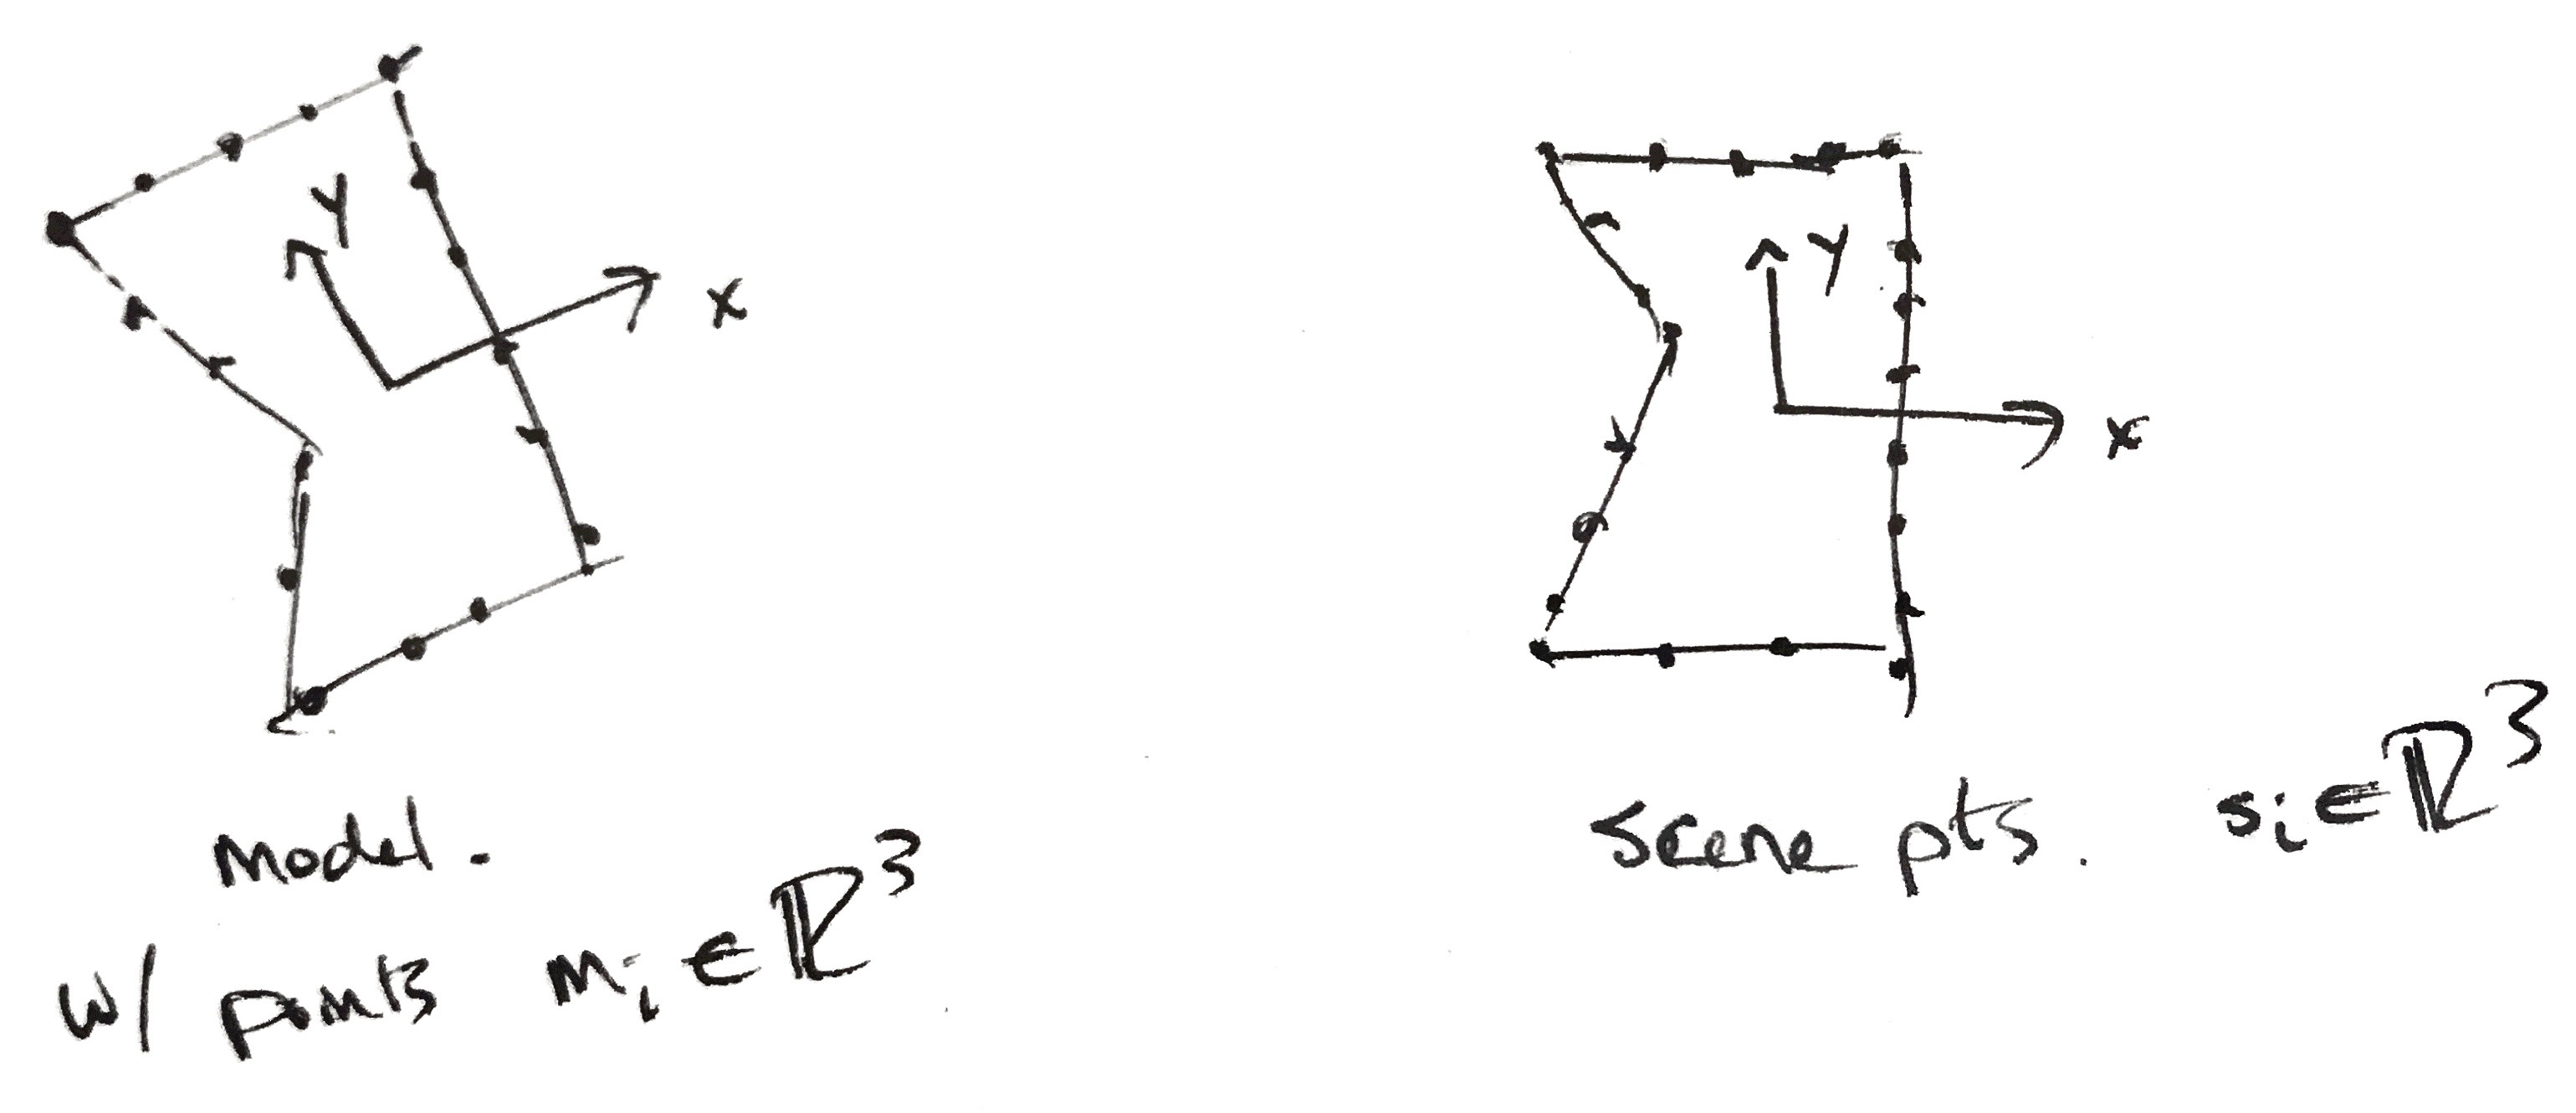 Y
x
Model.
w/ points mᵢ ∈ ℝ³
Y
x
Scene pts. sᵢ ∈ ℝ³